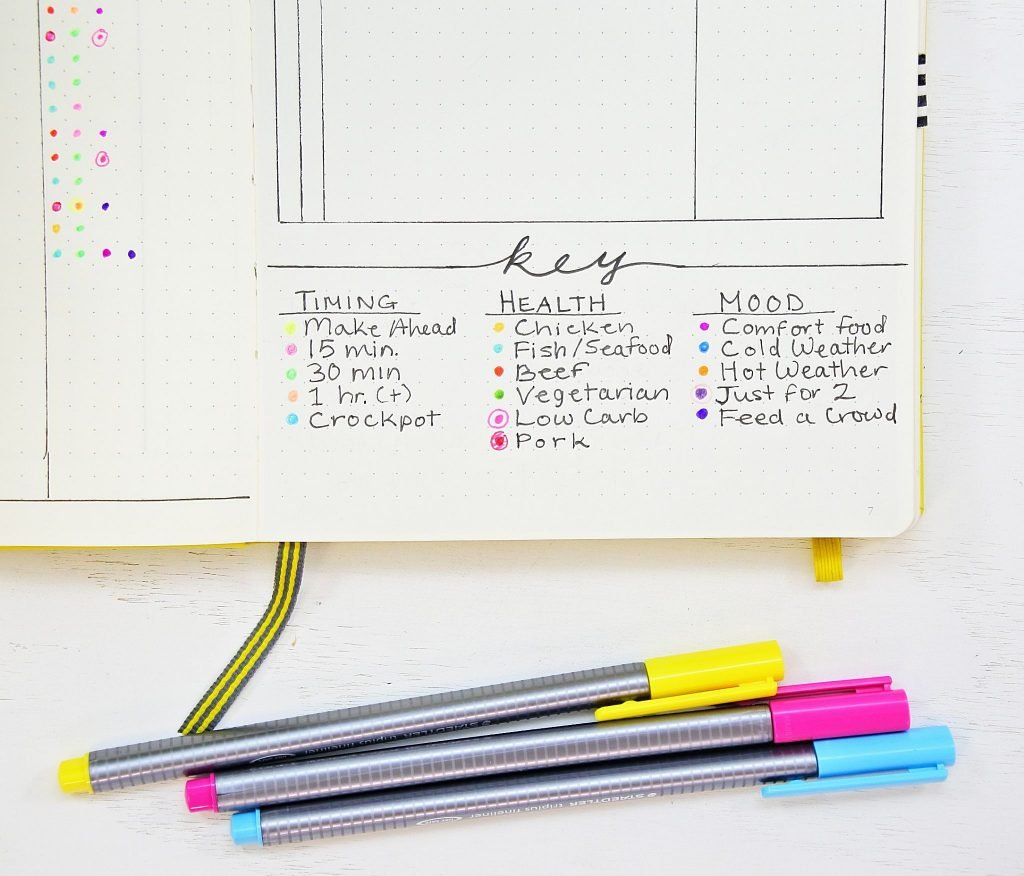 key
TIMING
Make Ahead
15 min.
30 min
1 hr. (+)
Crockpot
HEALTH
Chicken
Fish/Seafood
Beef
Vegetarian
Low Carb
Pork
MOOD
Comfort food
Cold Weather
Hot Weather
Just for 2
Feed a Crowd
7
STAEDTLER triplus fineliner
STAEDTLER triplus fineliner